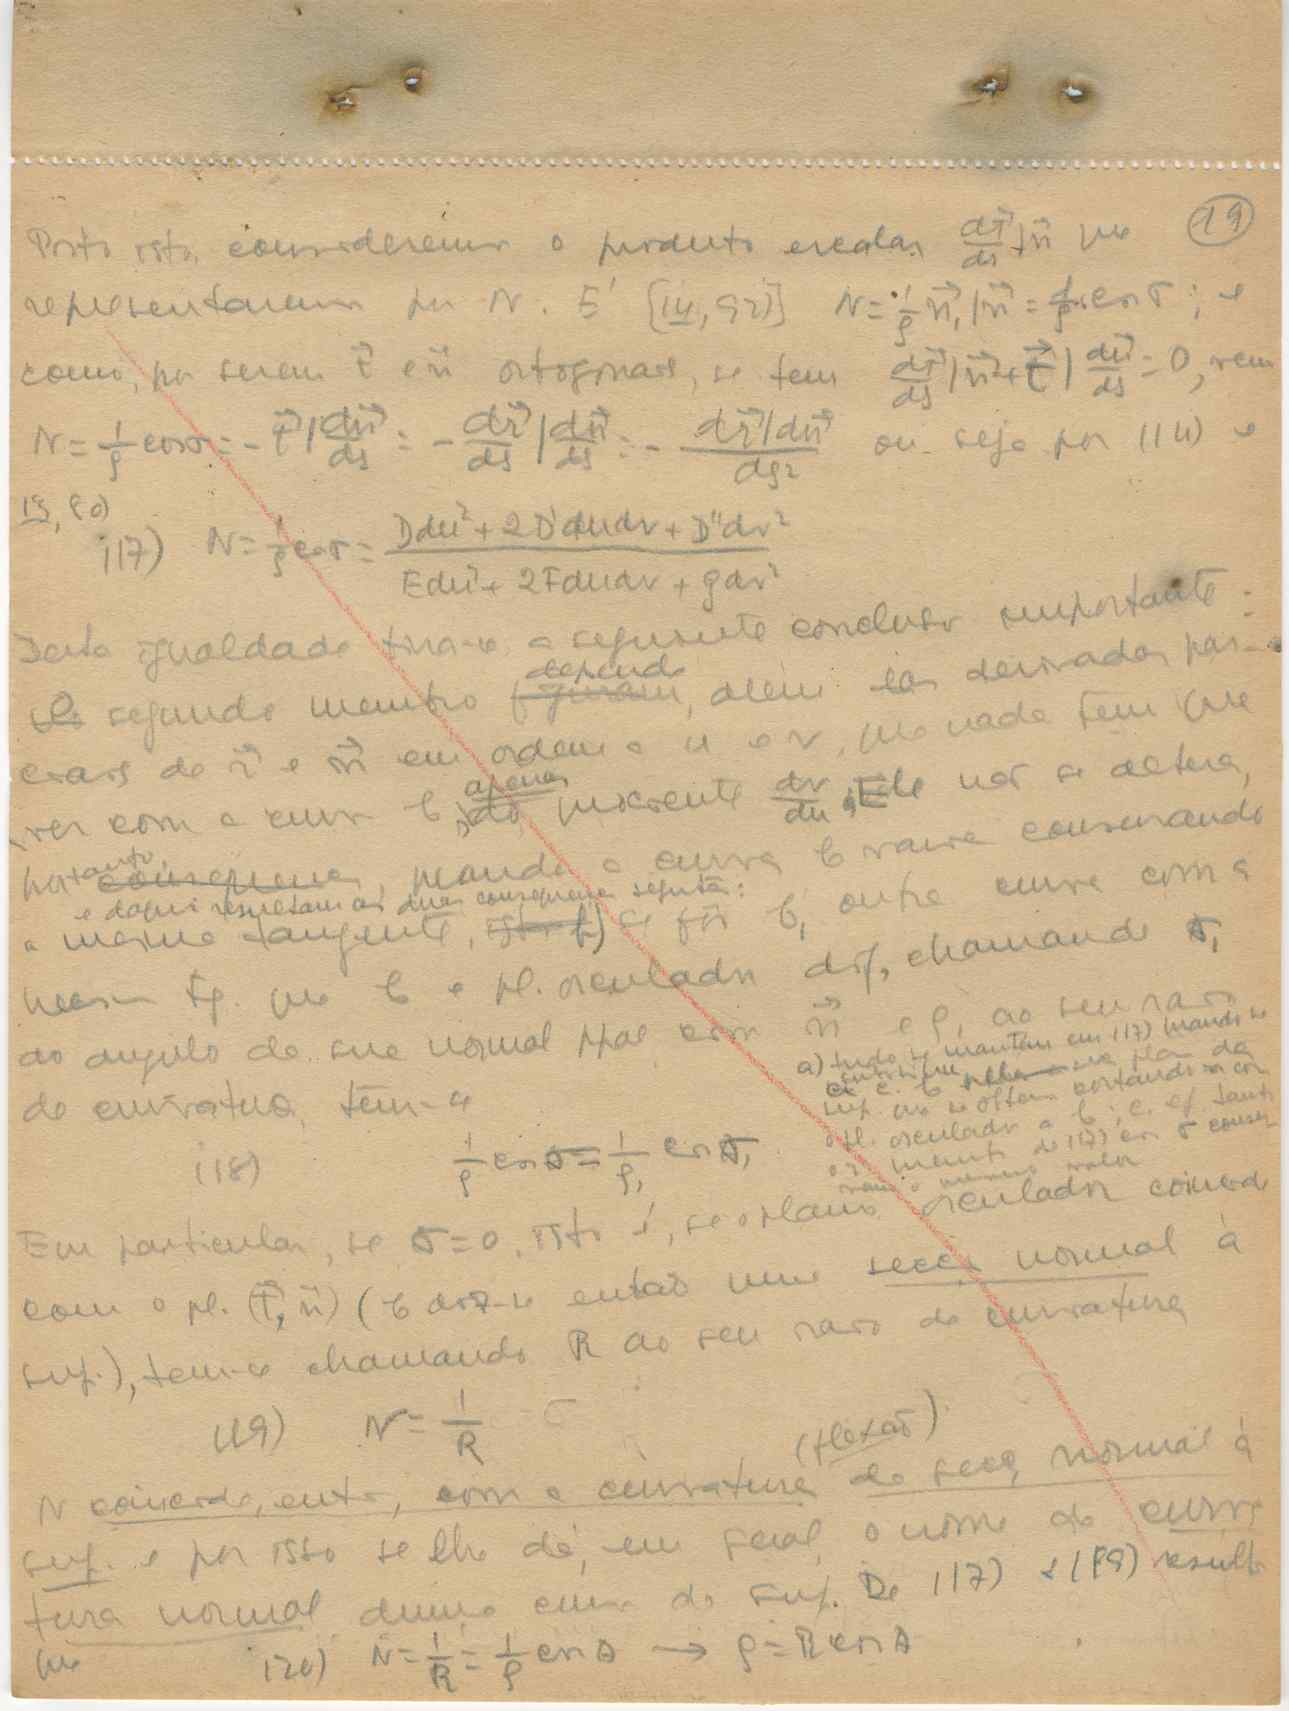 19
Posto isto, consideremos o produto escalar dt⃗/ds | n⃗ que
representaremos por N. E' [14, 92)] N = 1/ρ n⃗₁ | n⃗ = 1/ρ cos σ ; e
como, por serem t⃗ e n⃗ ortogonais, se tem dt⃗/ds | n⃗ + t⃗ | dn⃗/ds = 0, vem
N = 1/ρ cos σ = - t⃗ | dn⃗/ds = - dr⃗/ds | dn⃗/ds = - dr⃗ | dn⃗ / ds² ou seja por 114) e
13, 80)
117) N = 1/ρ cos σ = (D du² + 2D' du dv + D'' dv²) / (E du² + 2F du dv + G dv²)
Desta igualdade tira-se a seguinte conclusão importante:
o segundo membro figuram, depende além das derivadas par-
ciais de r⃗ e n⃗ em ordem a u e v, que nada têm que
ver com a curva C, apenas do quociente dv/du ; Ele não se altera,
portanto, quando a curva C varia conservando
e daqui resultam as duas consequências seguintes:
a mesma tangente, se for C₁ outra curva com a
mesma tg. que C e pl. osculador dif, chamando σ₁
ao ângulo da sua normal ppal com n⃗ e ρ₁ ao seu raio
de curvatura, tem-se
a) tudo se mantém em 117) quando se
substitui a c. C pela plana da
sup. que se obtem cortando-a com
o pl. osculador a C ; c. ef. tanto
o 2º membro de 117) com σ conser-
vam o mesmo valor
118) 1/ρ cos σ = 1/ρ₁ cos σ₁
Em particular, se σ = 0, isto é, se o plano osculador coincide
com o pl. (t⃗, n⃗) (C diz-se então uma secção normal à
sup.), tem-se chamando R ao seu raio de curvatura
119) N = 1/R
(flexão)
N coincide, então, com a curvatura da secç. normal à
sup. e por isso se lhe dá, em geral, o nome de curva-
tura normal duma curva da sup. De 117) e 119) resulta
que 120) N = 1/R = 1/ρ cos σ → ρ = R cos σ